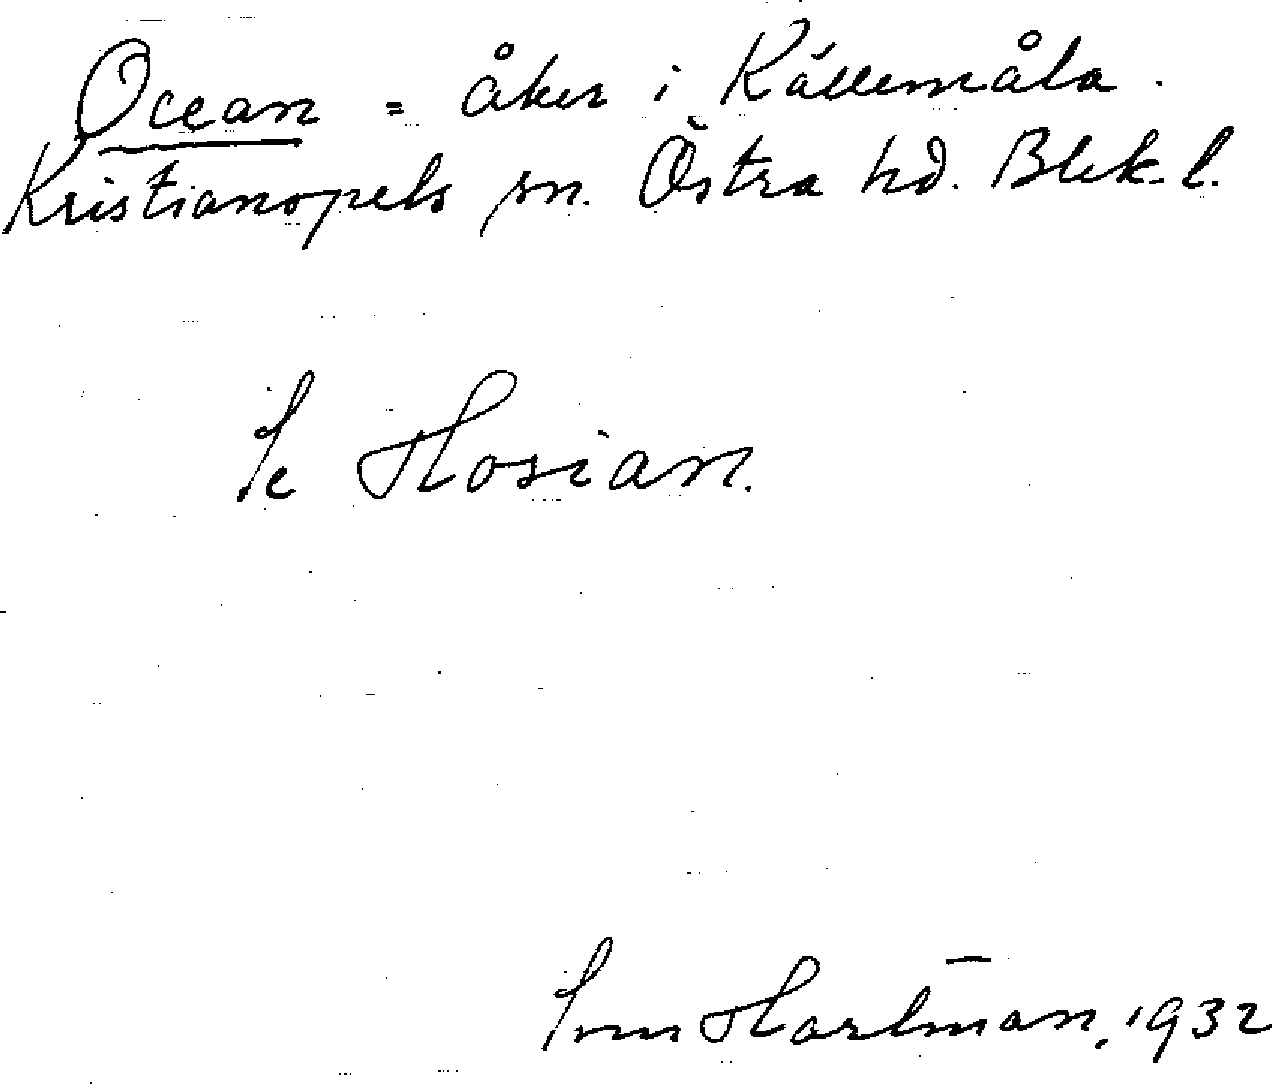 Ocean = åker i Källemåla.
Kristianopels sn. Östra hd. Blek. l.
Se Hosian.
Sven Hartman, 1932